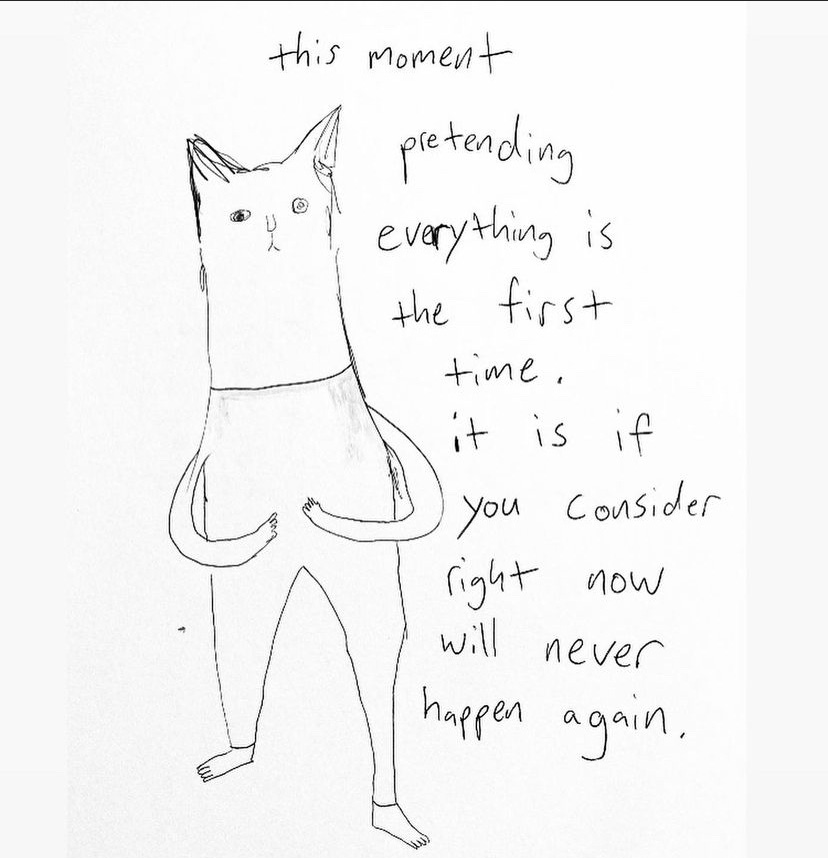 this moment
pretending
everything is
the first
time.
it is if
you consider
right now
will never
happen again.